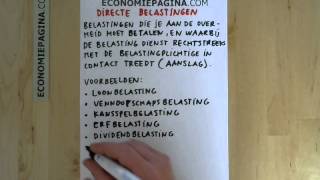 ECONOMIEPAGINA.COM
DIRECTE BELASTINGEN
BELASTINGEN DIE JE AAN DE OVER-
HEID MOET BETALEN, EN WAARBIJ
DE BELASTING DIENST RECHTSTREEKS
MET DE BELASTINGPLICHTIGE IN
CONTACT TREEDT (AANSLAG).
VOORBEELDEN:
• LOONBELASTING
• VENNOOTSCHAPSBELASTING
• KANSSPELBELASTING
• ERFBELASTING
• DIVIDENDBELASTING
ECONOMIEPAGINA.COM